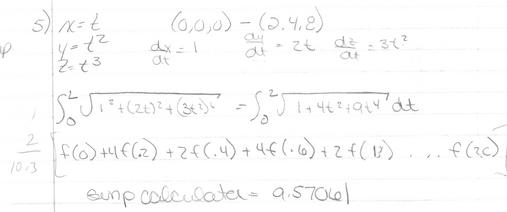 5) x = t (0,0,0) - (2,4,8)
y = t² dx/dt = 1 dy/dt = 2t dz/dt = 3t²
z = t³
∫₀² √(1² + (2t)² + (3t²)²) = ∫₀² √(1 + 4t² + 9t⁴) dt
2/10·3 [f(0) + 4f(.2) + 2f(.4) + 4f(.6) + 2f( ... f(20)]
simp calculator = 9.5706